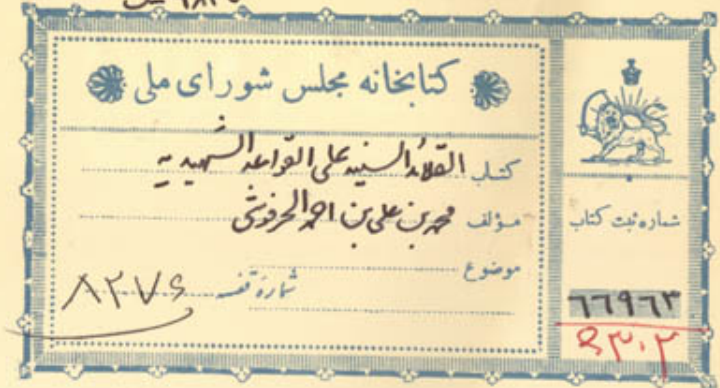 كتابخانه مجلس شورای ملی
کتاب القلائد السنیه علی القواعد الشهیدیه
مؤلف محمد بن علی بن احمد الحرفوشی
موضوع
شماره قفسه ۸۲۷۶
شماره ثبت کتاب
۶۶۹۶۳
۹۳۰۲